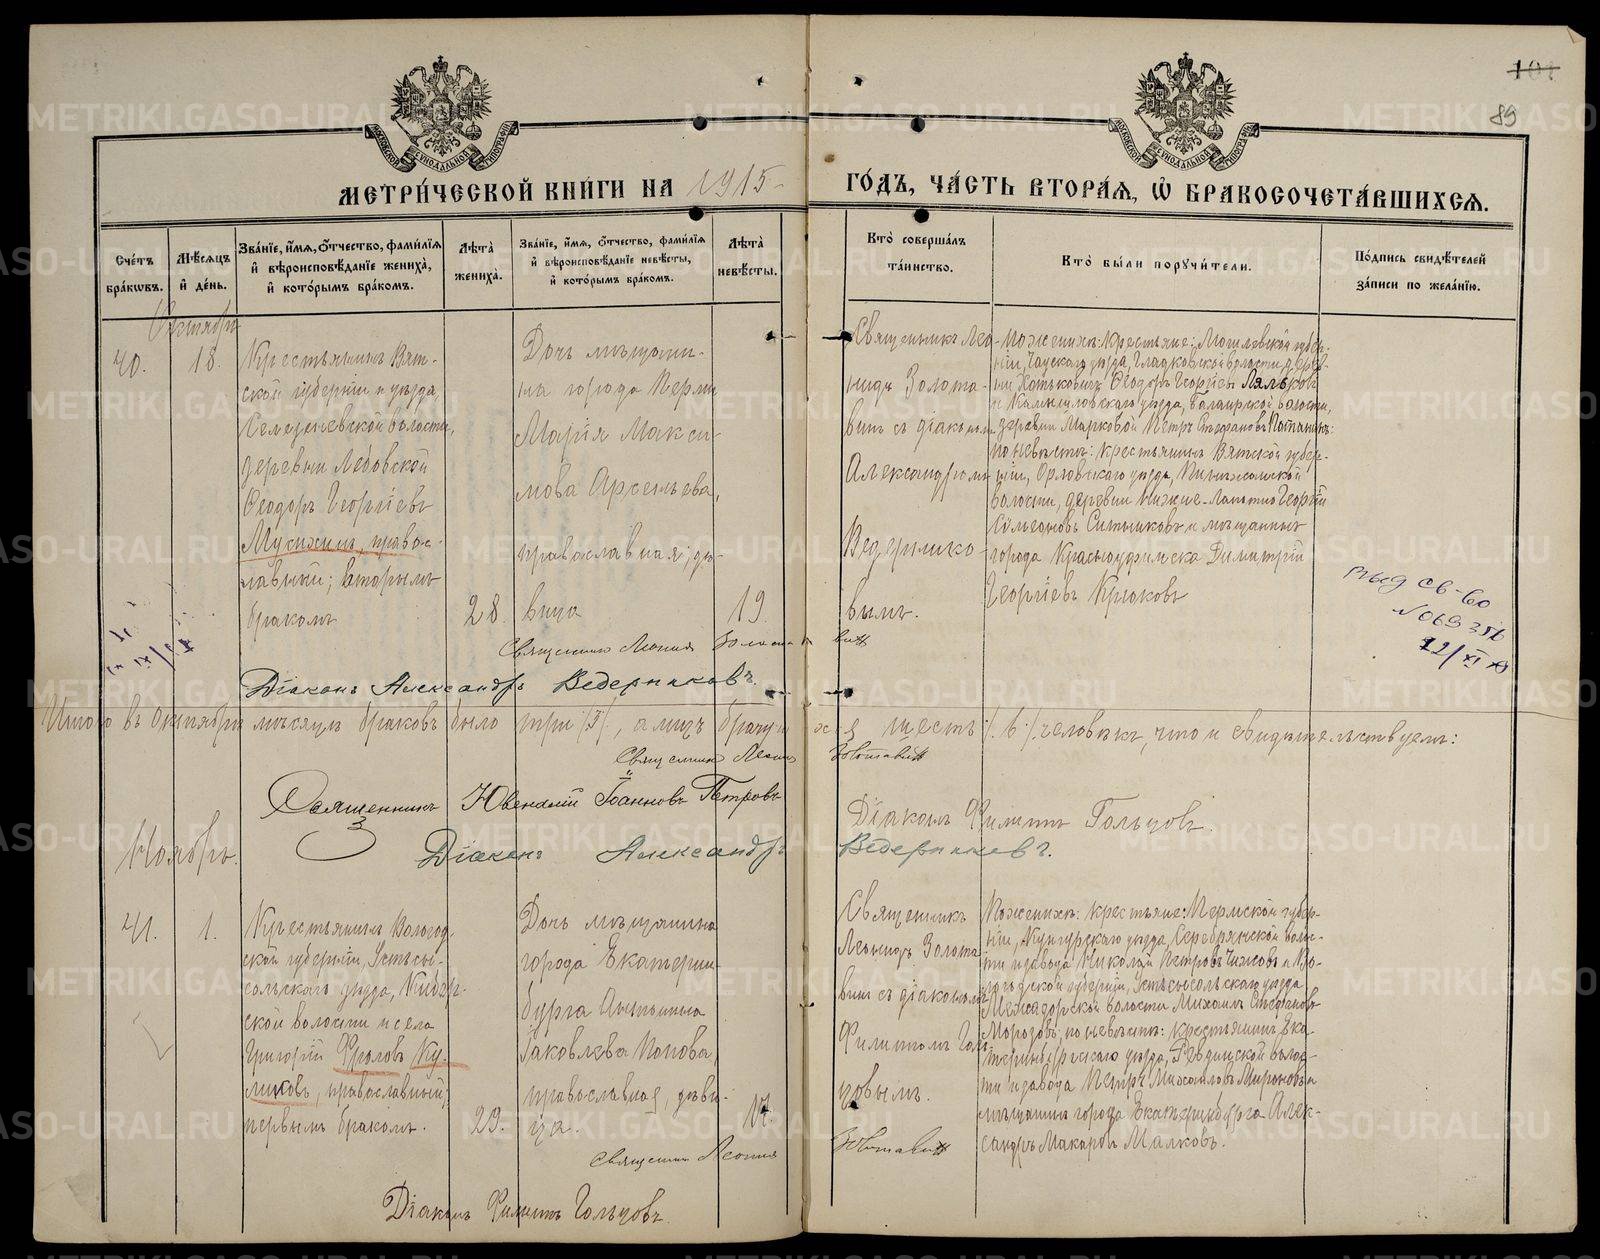 101
89
МЕТРИ́ЧЕСКОЙ КНИ́ГИ НА 1915 ГО́ДЪ, ЧА́СТЬ ВТОРА́Я, Ѽ БРАКОСОЧЕТА́ВШИХСЯ.
Сче́тъ бра́кѡвъ.
Мѣ́сяцъ и҆ де́нь.
Зва́нїе, и҆́мя, ѻ҆́тчество, фами́лїя и҆ вѣроисповѣ́данїе жениха̀, и҆ кото́рымъ бра́комъ.
Лѣ́та̀ жениха̀.
Зва́нїе, и҆́мя, ѻ҆́тчество, фами́лїя и҆ вѣроисповѣ́данїе невѣ́сты, и҆ кото́рымъ бра́комъ.
Лѣ́та̀ невѣ́сты.
Кто̀ соверша́лъ та́инство.
Кто̀ бы́ли порꙋчи́тели.
По́дпись свидѣ́телей за́писи по жела́нїю.
Октябрь
40.
18.
Крестьянинъ Вят-
ской губерніи и уѣзда,
Селезеневской волости,
деревни Лебовской
Ѳеодоръ Георгіевъ
Мусихинъ, правос-
лавный; вторымъ
бракомъ
28.
Дочь мѣщани-
на города Перми
Марія Макси-
мова Арсеньева,
православная; дѣ-
вица
19.
Священникъ Лео-
нидъ Золота-
винъ съ діакономъ
Александромъ
Ведернико-
вымъ.
По женихѣ: крестьяне: Могилевской губер-
ніи, Чаускаго уѣзда, Гладковской волости, дерев-
ни Хотьковичи Ѳеодоръ Георгіевъ Ляльковъ
и Камышловскаго уѣзда, Балаирской волости,
деревни Марковой Петръ Стефановъ Потанинъ:
по невѣстѣ: крестьянинъ Вятской губер-
ніи, Орловскаго уѣзда, Пинюжанской
волости, деревни Нижне-Лапотна Георгій
Сѵмеоновъ Ситниковъ и мѣщанинъ
города Красноуфимска Димитрій
Георгіевъ Крюковъ
выд св-во
№ 069356
12/XI
Священникъ Леонидъ Золотавинъ
Діаконъ Александръ Ведерниковъ.
Итого въ Октябрѣ мѣсяцѣ браковъ было три /3/, а лицъ брачущихся шесть /6/ человѣкъ, что и свидѣтельствуемъ:
Священникъ Леонидъ Золотавинъ
Священникъ Ювеналій Іоанновъ Петровъ
Діаконъ Филиппъ Гольцовъ.
Діаконъ Александръ Ведерниковъ.
Ноябрь.
41.
1.
Крестьянинъ Вологод-
ской губерніи, Устьсы-
сольскаго уѣзда, Кибер-
ской волости и села
Григорій Фроловъ Ку-
ликовъ, православный;
первымъ бракомъ.
29.
Дочь мѣщанина
города Екатерин-
бурга Антонина
Іаковлева Попова,
православная, дѣви-
ца.
17.
Священникъ
Леонидъ Золота-
винъ съ діакономъ
Филиппомъ Голь-
цовымъ.
По женихѣ: крестьяне: Пермской губер-
ніи, Кунгурскаго уѣзда, Серебрянской волос-
ти и завода Николай Петровъ Чижовъ и Во-
логодской губерніи, Устьсысольскаго уѣзда
Межадорской волости Михаилъ Стефановъ
Морозовъ; по невѣстѣ: крестьянинъ Ека-
теринбургскаго уѣзда, Ревдинской волос-
ти и завода Петръ Михаиловъ Мироновъ и
мѣщанинъ города Екатеринбурга Алек-
сандръ Макаровъ Малковъ.
Священникъ Леонидъ Золотавинъ
Діаконъ Филиппъ Гольцовъ.
METRIKI.GASO-URAL.RU